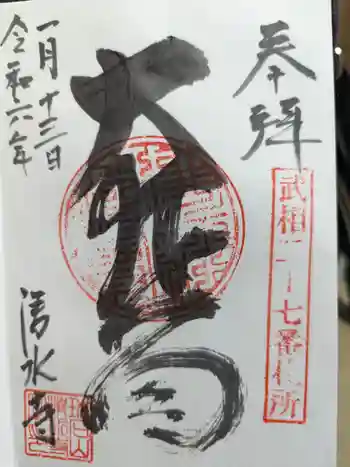 奉拝
武相二十七番札所
大悲殿
清水寺
令和六年
一月十三日